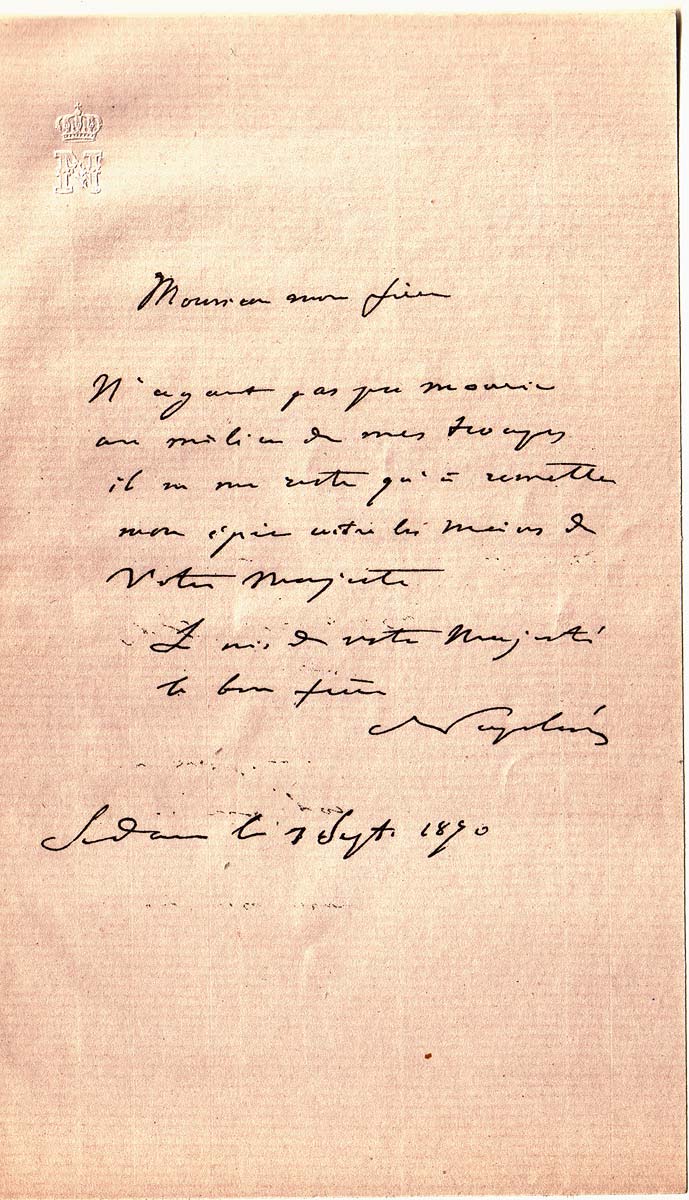 N
Monsieur mon frère
N'ayant pas pu mourir
au milieu de mes troupes
il ne me reste qu'à remettre
mon épée entre les mains de
Votre Majesté
Je suis de votre Majesté
le bon frère
Napoléon
Sedan le 1 Sept. 1870